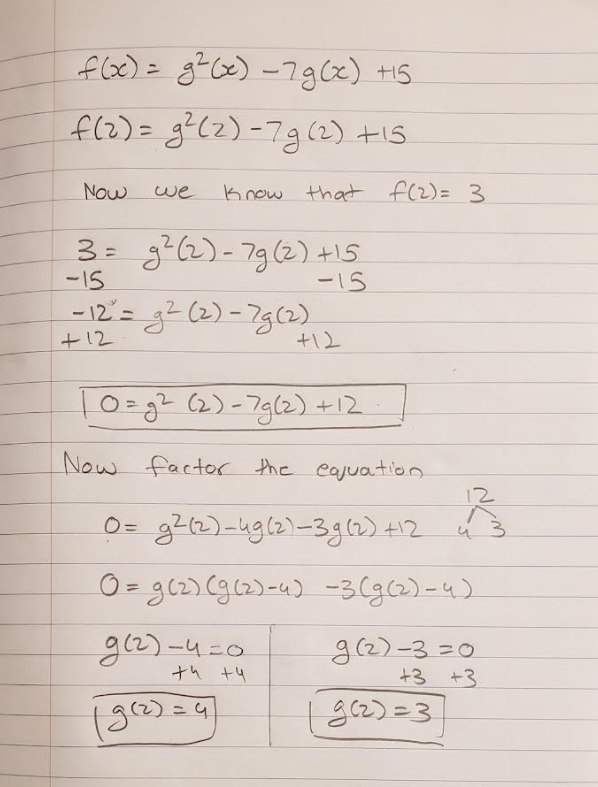 f(x) = g²(x) - 7g(x) +15
f(2) = g²(2) - 7g(2) +15
Now we know that f(2) = 3
3 = g²(2) - 7g(2) +15
-15 -15
-12 = g²(2) - 7g(2)
+12 +12
0 = g²(2) - 7g(2) +12
Now factor the equation
12
0 = g²(2) - 4g(2) - 3g(2) +12 4 3
0 = g(2)(g(2)-4) -3(g(2)-4)
g(2) - 4 = 0 g(2) - 3 = 0
+4 +4 +3 +3
g(2) = 4 g(2) = 3